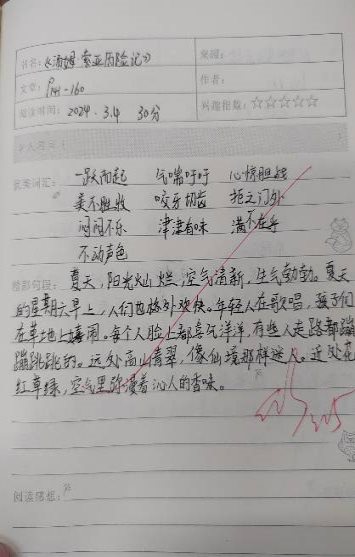 书名:《汤姆·索亚历险记》 来源:
文章: P141-160 作者:
阅读时间: 2024.3.4 30分 兴趣指数:☆☆☆☆☆
优美词汇: 一跃而起 气喘吁吁 心惊胆战
美不胜收 咬牙切齿 拒之门外
闷闷不乐 津津有味 满不在乎
不动声色
精彩句段: 夏天,阳光灿烂,空气清新,生气勃勃。夏天
的星期六早上,人们也格外欢快。年轻人在歌唱,孩子们
在草地上嬉闹。每个人脸上都喜气洋洋,有些人走路都蹦
蹦跳跳的。远处高山青翠,像仙境那样迷人。近处花
红草绿,空气里弥漫着沁人的香味。
阅读随想: